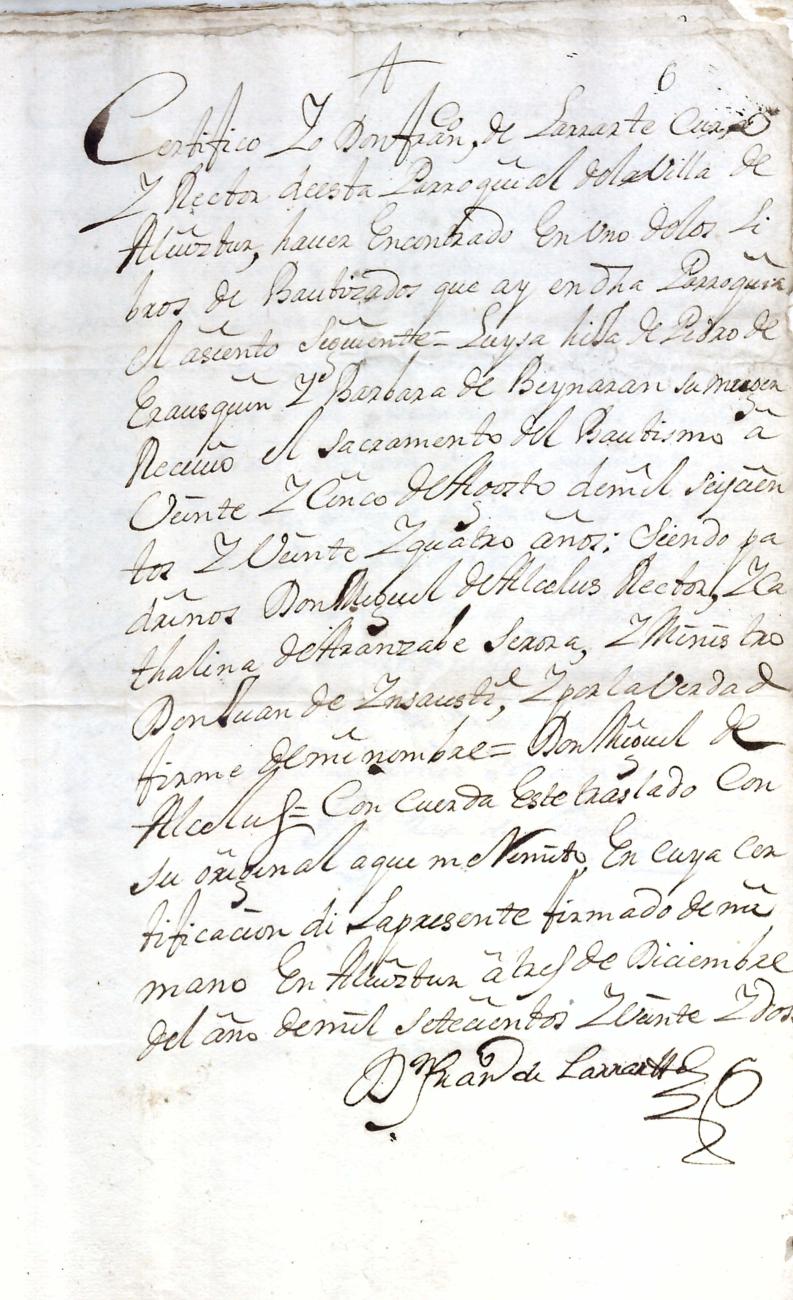 6
Certifico Yo Don franco, de Larrarte Cura
Y Rector deesta Parroquial dela Villa de
Alquiztur, haver Encontrado En Uno delos Li
bros de Bautizados que ay en dha Parroquia
el asiento siguiente= Luysa hija de Pedro de
Erausquin Y Barbara de Beynaran su muger
Reciuio el sacramento del Bautismo â
Veinte Y Cinco de Agosto demil seiscien
tos Y Veinte Y quatro años; Siendo pa
drinos Don Miguel de Alcelus Rector, Y Ca
thalina de Aranzabe Serora, Y Ministro
Don Juan de Ynsausti, Y por la Verdad
firme demi nombre= Don Miguel de
Alcelus= Con cuerda Este traslado Con
su original aque me Remito, En cuya cer
tificacion di La presente firmado de mi
mano En Alquiztur â tres de Diciembre
del año demil setecientos Y Veinte Y dos
Dn Franco de Larrarte